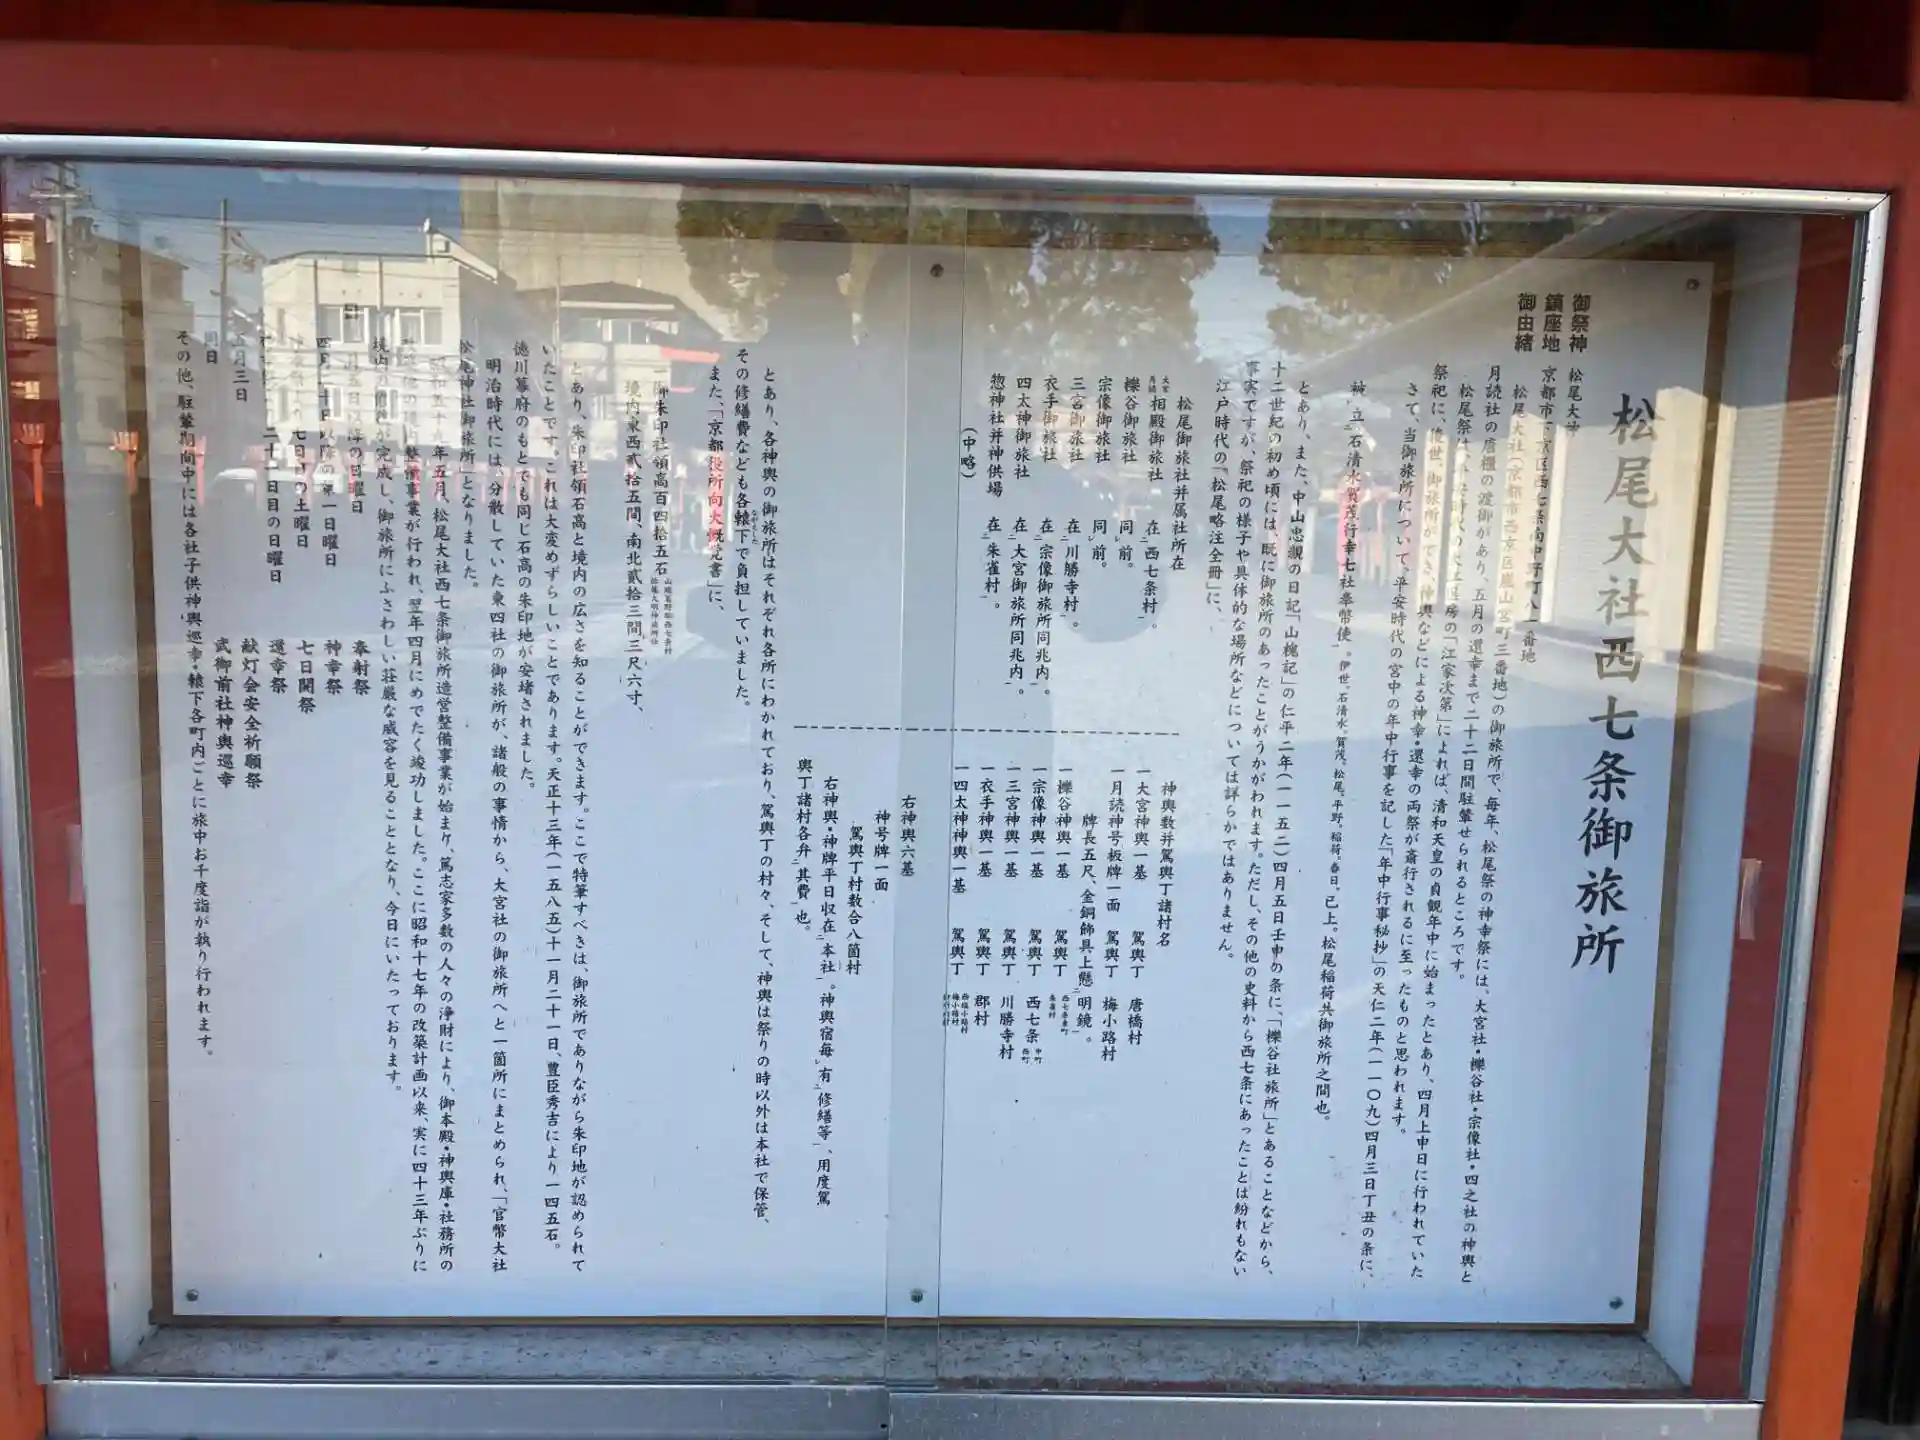 松尾大社西七条御旅所
御祭神　松尾大神
鎮座地　京都市下京区西七条南中野町八一番地
御由緒
松尾大社（京都市西京区嵐山宮町三番地）の御旅所で、毎年、松尾祭の神幸祭には、大宮社・櫟谷社・宗像社・四之社の神輿と
月読社の唐櫃の渡御があり、五月の還幸まで二十二日間駐輦せられるところです。
松尾祭は、の「江家次第」によれば、清和天皇の貞観年中に始まったとあり、四月上申日に行われていた
祭祀に、後世、御旅所ができ、神輿などによる神幸・還幸の両祭が斎行されるに至ったものと思われます。
さて、当御旅所について、平安時代の宮中の年中行事を記した「年中行事秘抄」の天仁二年（一一〇九）四月三日丁丑の条に、
被立石清水賀茂行幸七社奉幣使。伊世。石清水。賀茂。松尾。平野。稲荷。春日。已上。松尾稲荷共御旅所之間也。
とあり、また、中山忠親の日記「山槐記」の仁平二年（一一五二）四月五日壬申の条に、「櫟谷社旅所」とあることなどから、
十二世紀の初め頃には、既に御旅所のあったことがうかがわれます。ただし、その他の史料から西七条にあったことは紛れもない
事実ですが、祭祀の様子や具体的な場所などについては詳らかではありません。
江戸時代の「松尾略注全冊」に、
松尾御旅社并属社所在
大宮月読相殿御旅社　在二西七条村一。
櫟谷御旅社　同レ前。
宗像御旅社　同レ前。
三宮御旅社　在二川勝寺村一。
衣手御旅社　在二宗像御旅所同兆内一。
四太神御旅社　在二大宮御旅所同兆内一。
惣神社并神供場　在二朱雀村一。
（中略）
神輿数并駕輿丁諸村名
一大宮神輿一基　駕輿丁　唐橋村
一月読神号板牌一面　駕輿丁　梅小路村
牌長五尺、金銅飾具上懸二明鏡一。
一櫟谷神輿一基　駕輿丁　西七条東町　朱雀村
一宗像神輿一基　駕輿丁　西七条　中町　西町
一三宮神輿一基　駕輿丁　川勝寺村
一衣手神輿一基　駕輿丁　郡村
一四太神神輿一基　駕輿丁
右神輿六基
神号牌一面
駕輿丁村数合八箇村
右神輿・神牌平日収在二本社一。神輿宿毎レ有二修繕等一、用度駕
輿丁諸村各弁二其費一也。
とあり、各神輿の御旅所はそれぞれ各所にわかれており、駕輿丁の村々、そして、神輿は祭りの時以外は本社で保管、
その修繕費なども各轅下で負担していました。
ながえした
また、「京都役所向大概覚書」に、
一御朱印社領高百四拾五石　山城葛野郡西七条村
境内東西貳拾五間、南北貳拾三間三尺六寸、
とあり、朱印社領石高と境内の広さを知ることができます。ここで特筆すべきは、御旅所でありながら朱印地が認められて
いたことです。これは大変めずらしいことであります。天正十三年（一五八五）十一月二十一日、豊臣秀吉により一四五石。
徳川幕府のもとでも同じ石高の朱印地が安堵されました。
明治時代には、分散していた東四社の御旅所が、諸般の事情から、大宮社の御旅所へと一箇所にまとめられ、「官幣大社
松尾神社御旅所」となりました。
昭和五十九年五月、松尾大社西七条御旅所造営整備事業が始まり、篤志家多数の人々の浄財により、御本殿・神輿庫・社務所の
整備事業が行われ、翌年四月にめでたく竣功しました。ここに昭和十七年の改築計画以来、実に四十三年ぶりに
境内のが完成し、御旅所にふさわしい荘厳な威容を見ることとなり、今日にいたっております。
月五日以降の日曜日　奉射祭
四月二十日以降の第一日曜日　神幸祭
七日目の土曜日　七日開祭
二十一日目の日曜日　還幸祭
五月三日　献灯会安全祈願祭
同日　武御前社神輿巡幸
その他、駐輦期間中には各社子供神輿巡幸・轅下各町内ごとに旅中お千度詣が執り行われます。